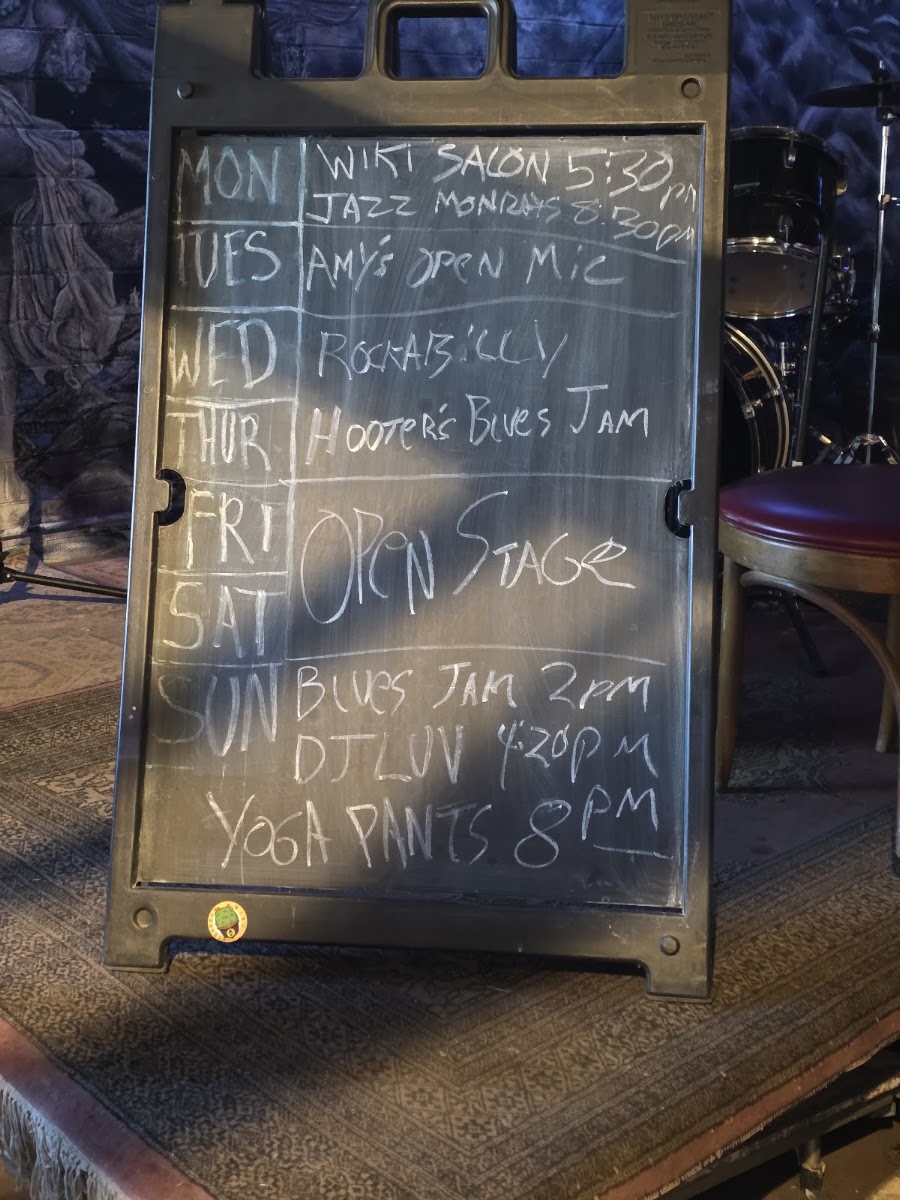 MON WIKI SALON 5:30PM
JAZZ MONDAYS 8:30PM
TUES AMY'S OPEN MIC
WED ROCKABILLY
THUR HOOTER'S BLUES JAM
FRI OPEN STAGE
SAT
SUN BLUES JAM 2PM
DJ LUV 4:20PM
YOGA PANTS 8PM